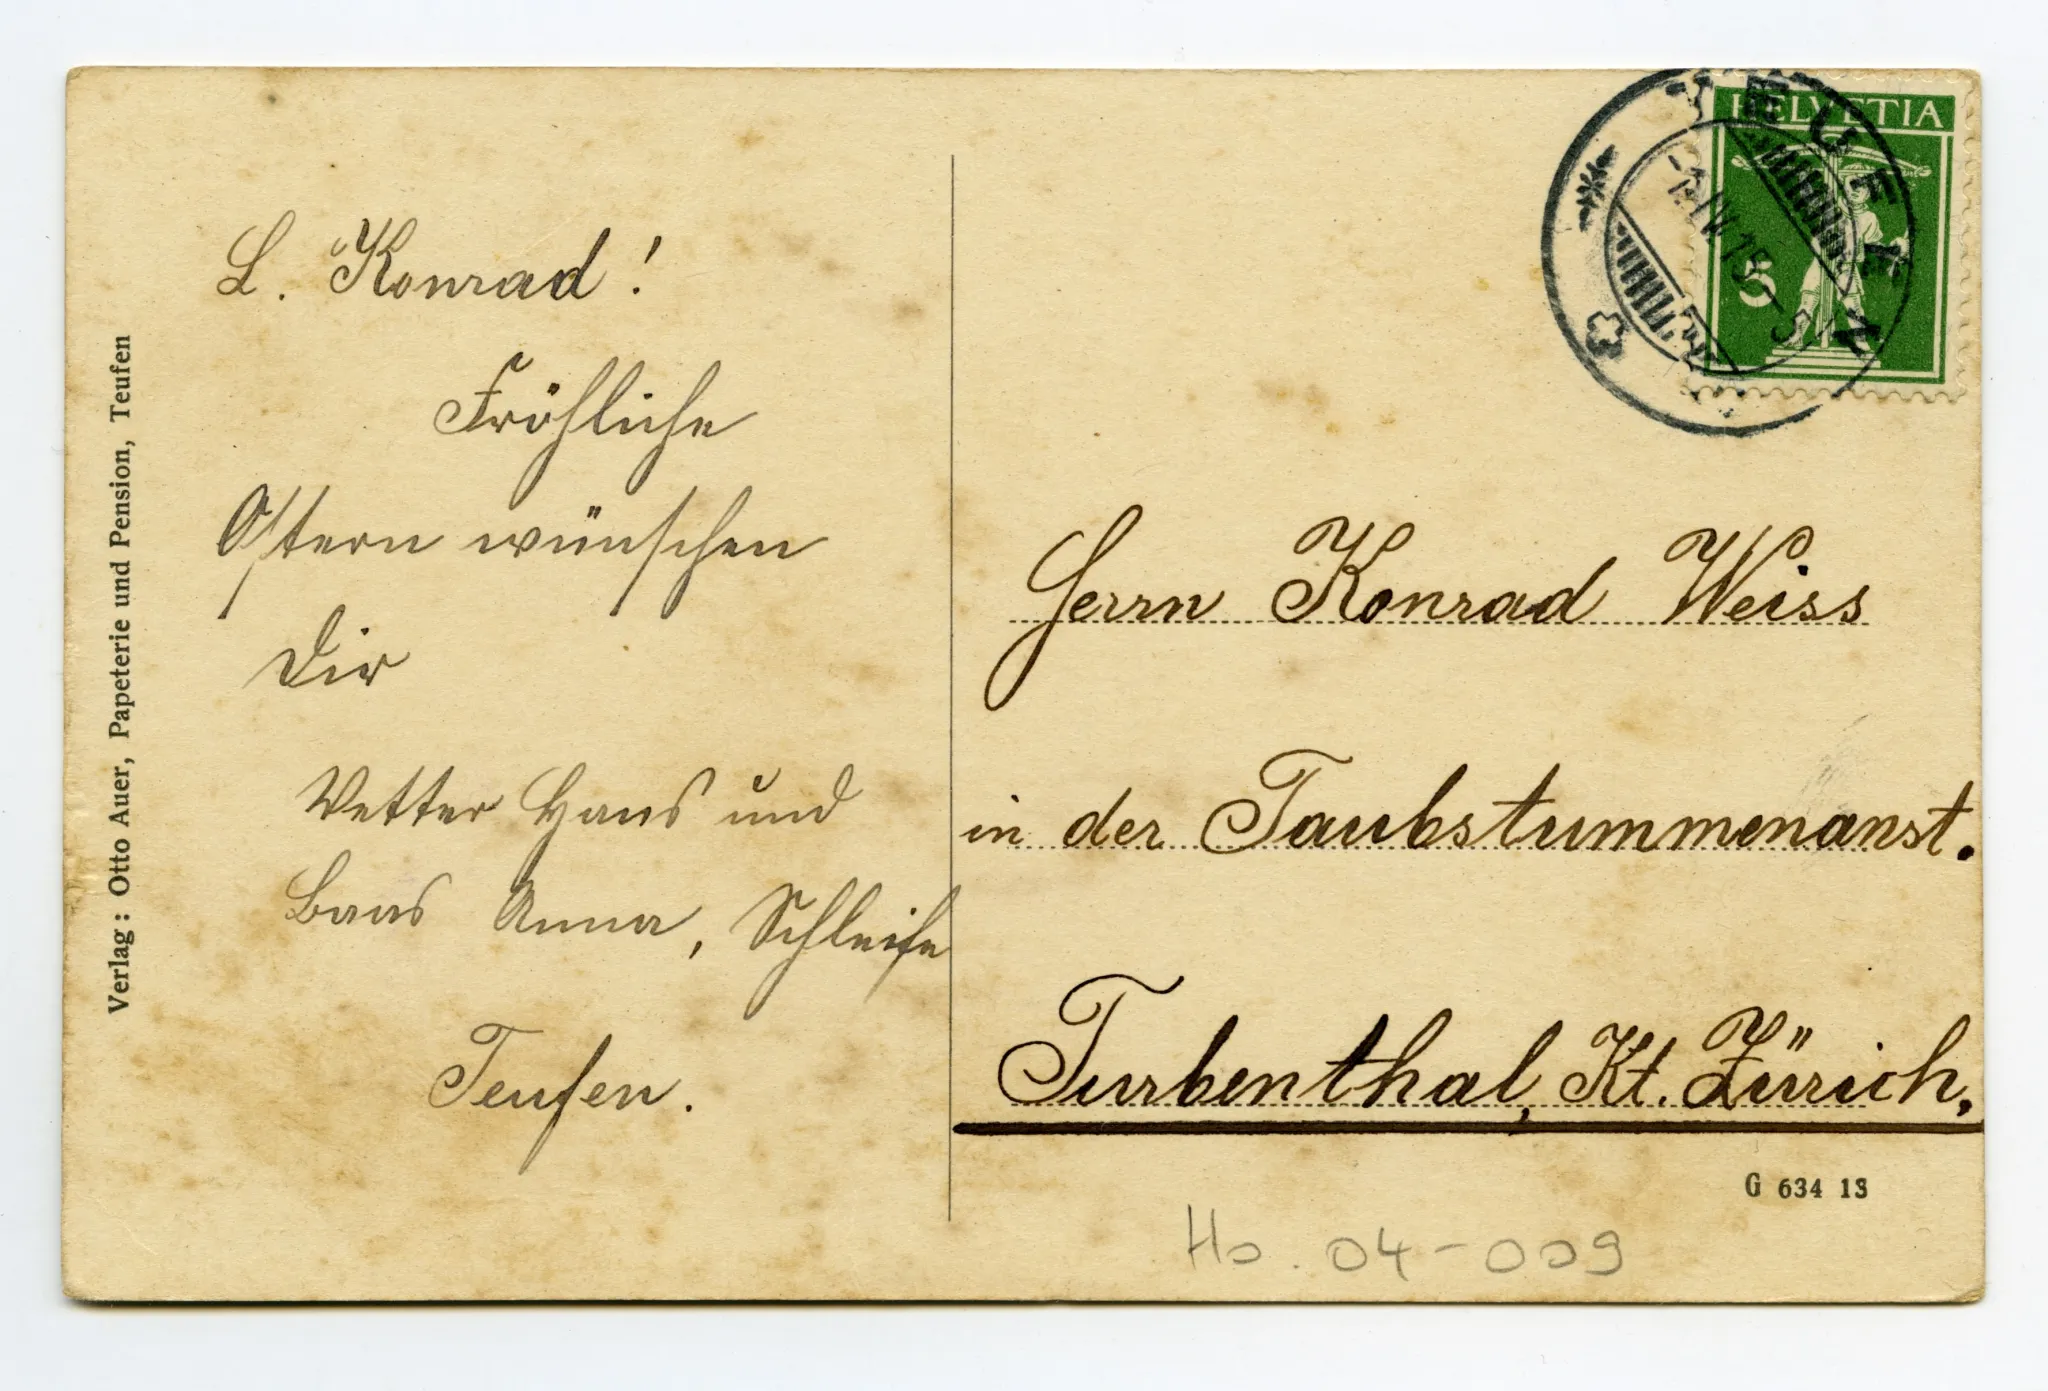 Verlag: Otto Auer, Papeterie und Pension, Teufen
L. Konrad!
Fröhliche
Ostern wünschen
Dir
Vetter Hans und
Baas Anna, Schleife
Teufen.
HELVETIA
5
TEUFEN
Herrn Konrad Weiss
in der Taubstummenanst.
Turbenthal, Kt. Zürich,
G 634 13
Ho. 04-009